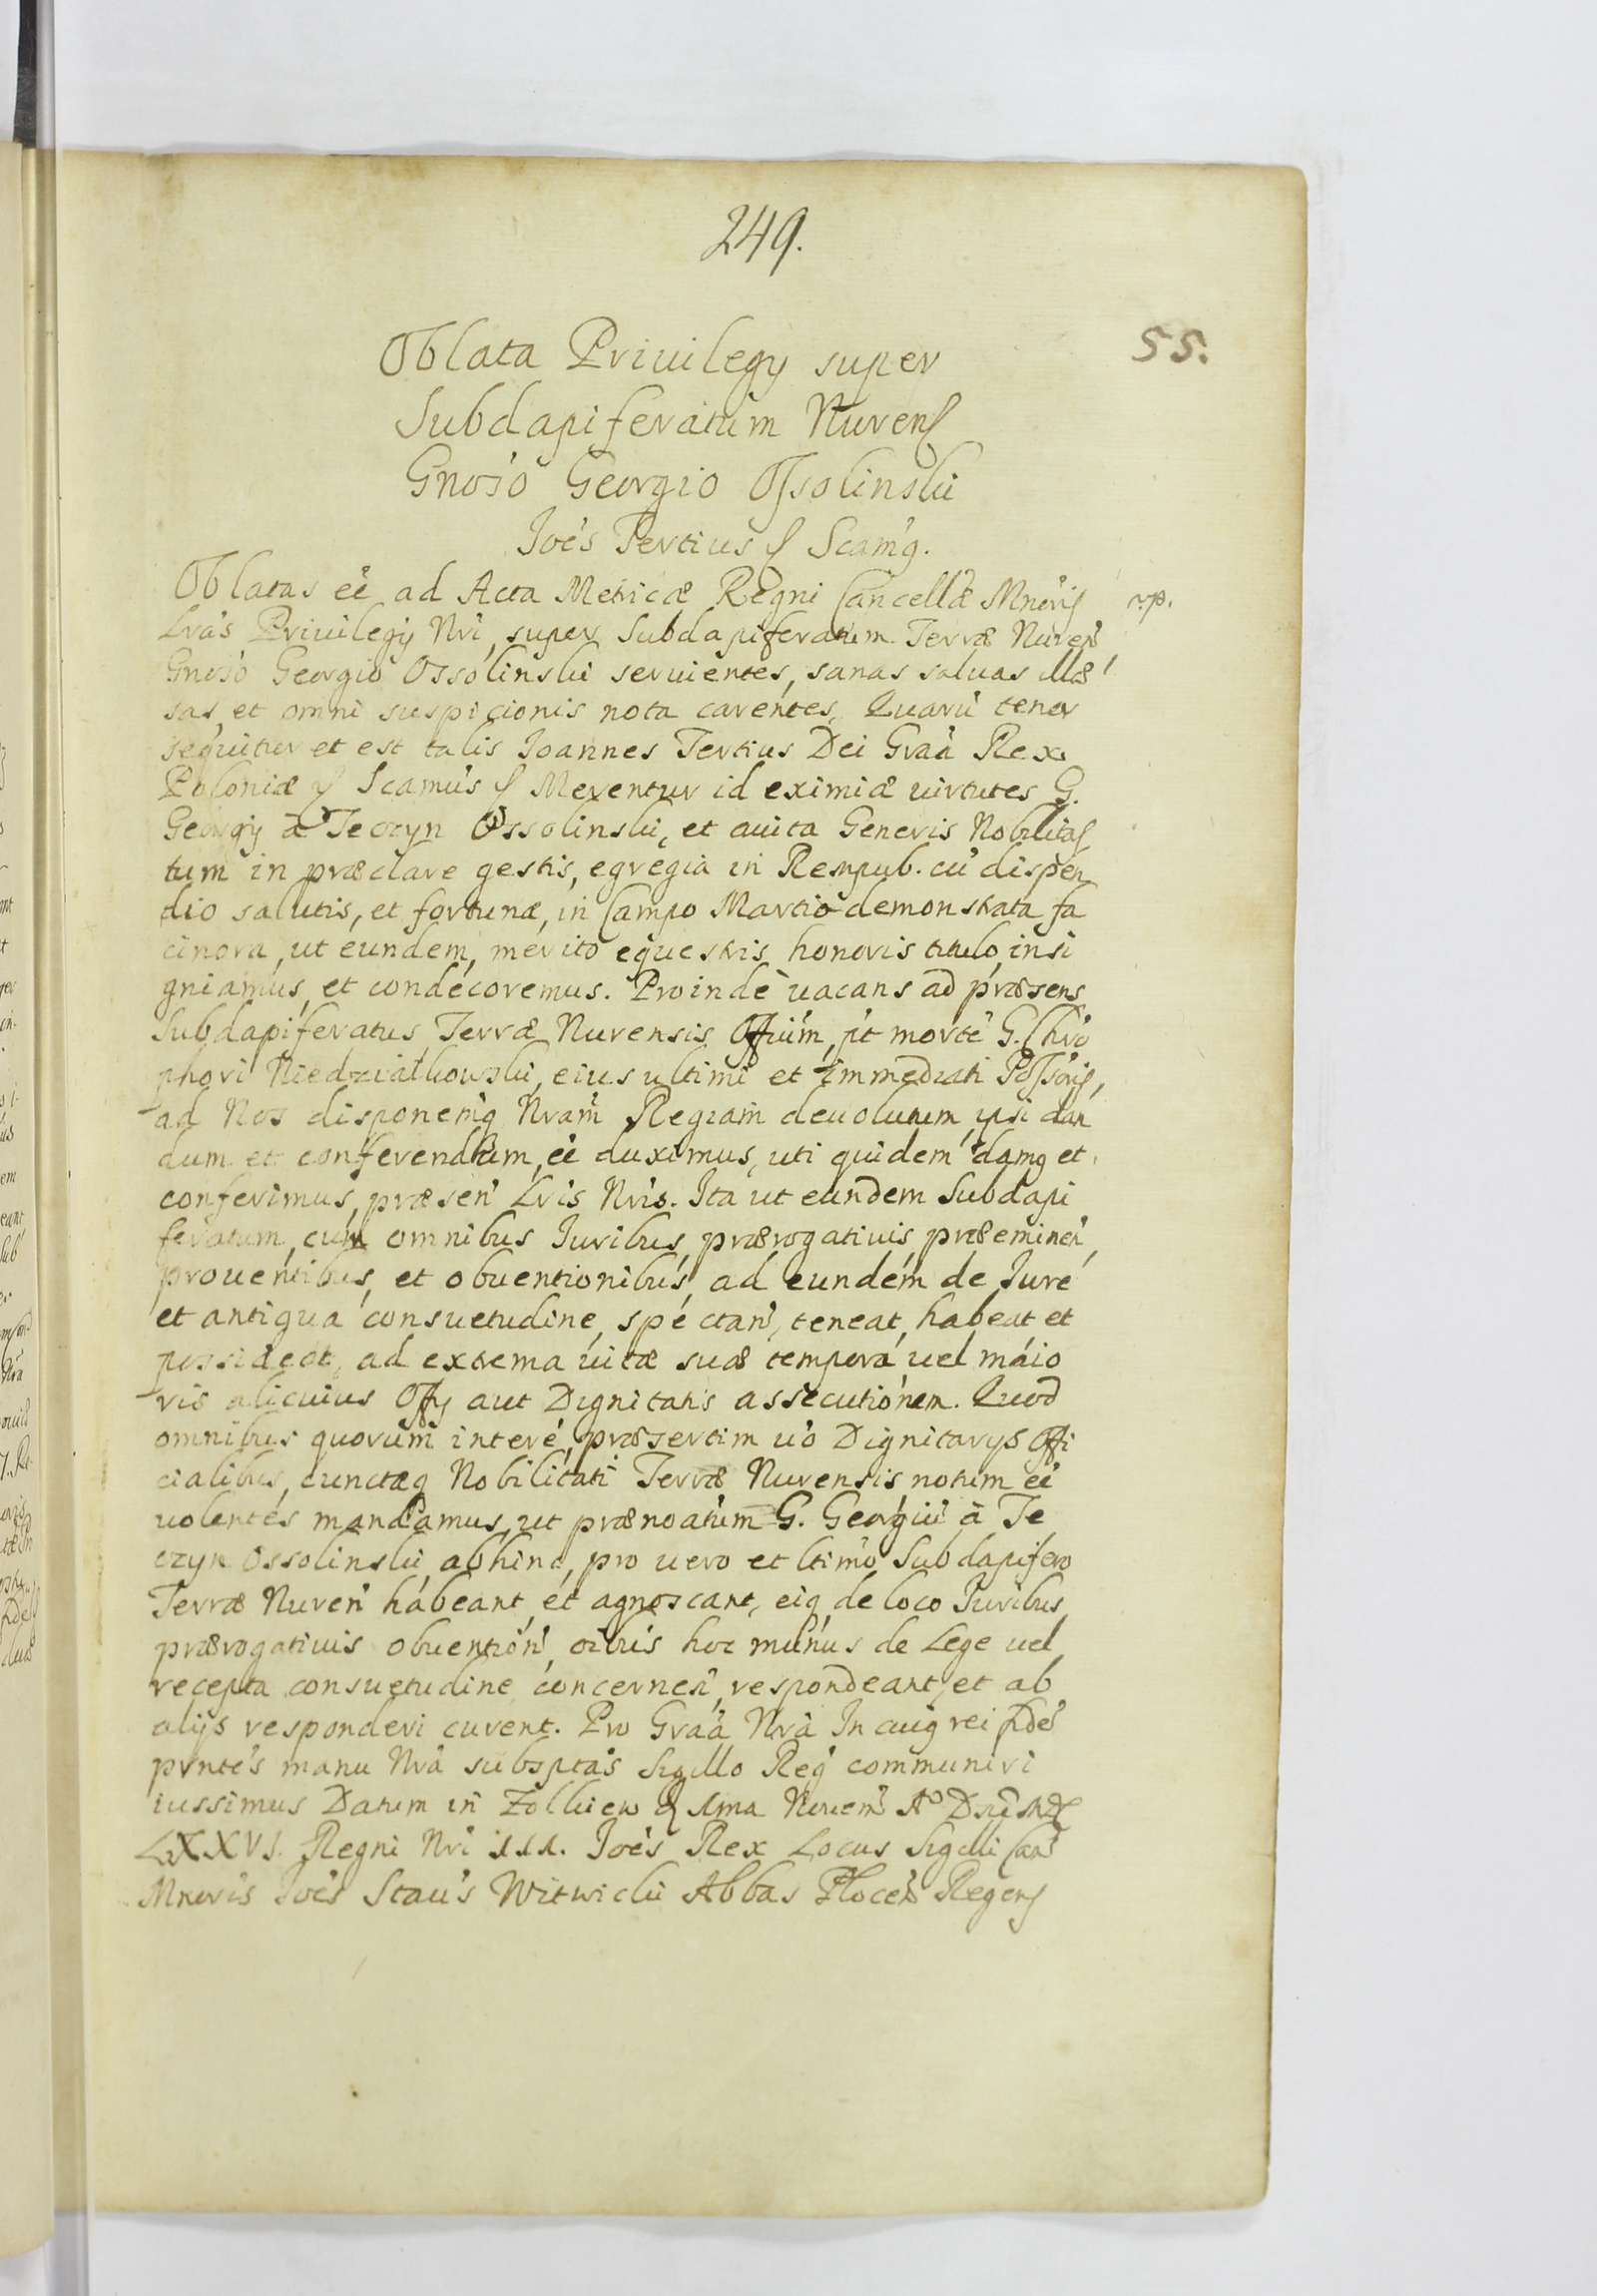 249.
55.
Oblata Priuilegij super
Subdapiferatum Nurens
Gnoso Georgio Ossolinski
Joes Tertius Scamg.
Oblatas eē ad Acta Metricæ Regni Cancellæ Mnoris
Lrās Priuilegij Nri, super Subdapiferatum Terræ Nureñ
Gnoso Georgio Ossolinski seruientes, sanas saluas illæ
sas, et omni suspicionis nota carentes, Quarū tenor
sequitur et est talis Joannes Tertius Dei Graā Rex
Poloniæ Scamus Merentur id eximiæ uirtutes G.
Georgij a Teczyn Ossolinski, et auita Generis Nobilitas
tum in præclare gestis, egregia in Rempub. cū dispen
dio salutis, et fortunæ, in Campo Martio demonstrata fa
cinora, ut eundem, merito equestris honoris titulo, insi
gniamus, et condecoremus. Proindè uacans ad præsens
Subdapiferatus Terræ Nurensis Offiūm, pt mortē G. Chrō
phori Niedzialkowski, eius ultimi et immediati Possoris,
ad Nos disponemq Nram Regiam deuolutum, ipsi dan
dum et conferendum, eē duximus, uti quidem damq et
conferimus, præseñ Lris Nris. Ita ut eundem Subdapi
feratum, cum omnibus Juribus, prærogatiuis, præemineñ,
prouentibus, et obuentionibus, ad eundem de Jure
et antiqua consuetudine, spectañ, teneat, habeat et
possideat, ad extrema uitæ suæ tempora uel maio
ris alicuius Offy aut Dignitatis assecutionem. Quod
omnibus quorum interē, præsertim uō Dignitarys Offi
cialibus, cunctæq Nobilitati Terræ Nurensis, notum eē
uolentes mandamus, ut prænoatum G. Georgiū à Te
czyn Ossolinski, abhinc, pro uero et ltimo Subdapifero
Terræ Nureñ habeant, et agnoscant, eiq de loco Juribus
prærogatiuis obuentioñ, oibus hoc munus de Lege uel
recepta consuetudine concerneñ, respondeant, et ab
alijs responderi curent. Pro Graā Nrā In cuiq rei fidē
prntes manu Nrā subsptas Sigillo Reg communiri
iussimus Datum in Zolkiew Nouem Aº Dni
LXXVI. Regni Nri III. Joēs Rex Locus Sigilli Can
Mnoris Joēs Staūs Witwicki Abbas Ploceñ Regens